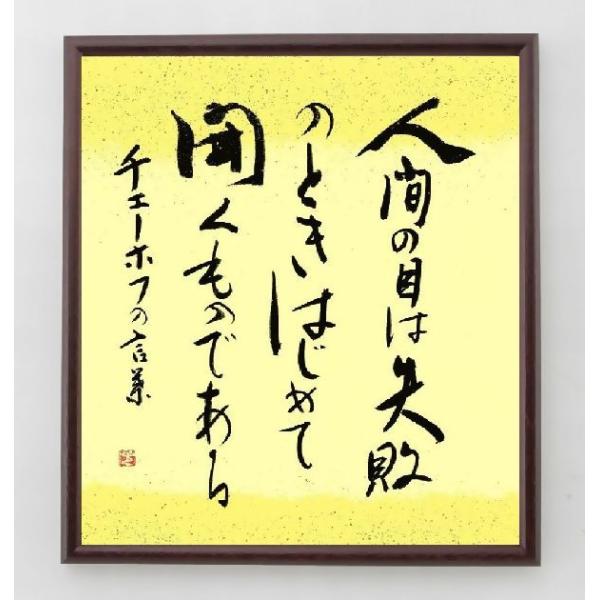 人間の目は失敗
のときはじめて
開くものである
チェーホフの言葉